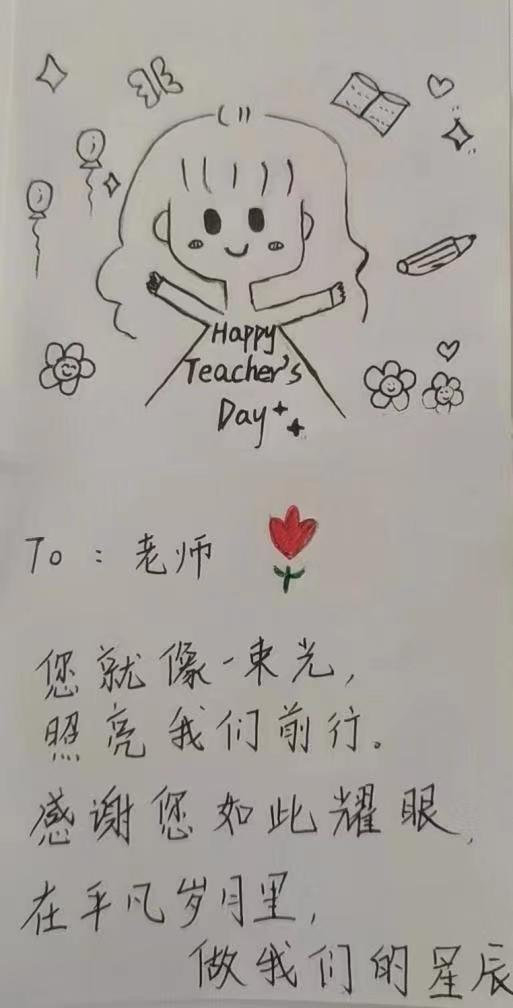 Happy
Teacher's
Day
To：老师
您就像一束光，
照亮我们前行。
感谢您如此耀眼，
在平凡岁月里，
做我们的星辰